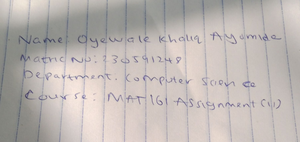 Name: Oyewole Kholiq Ayomide
Matric No: 230591248
Department: Computer Science
Course: MAT 161 Assignment (1)